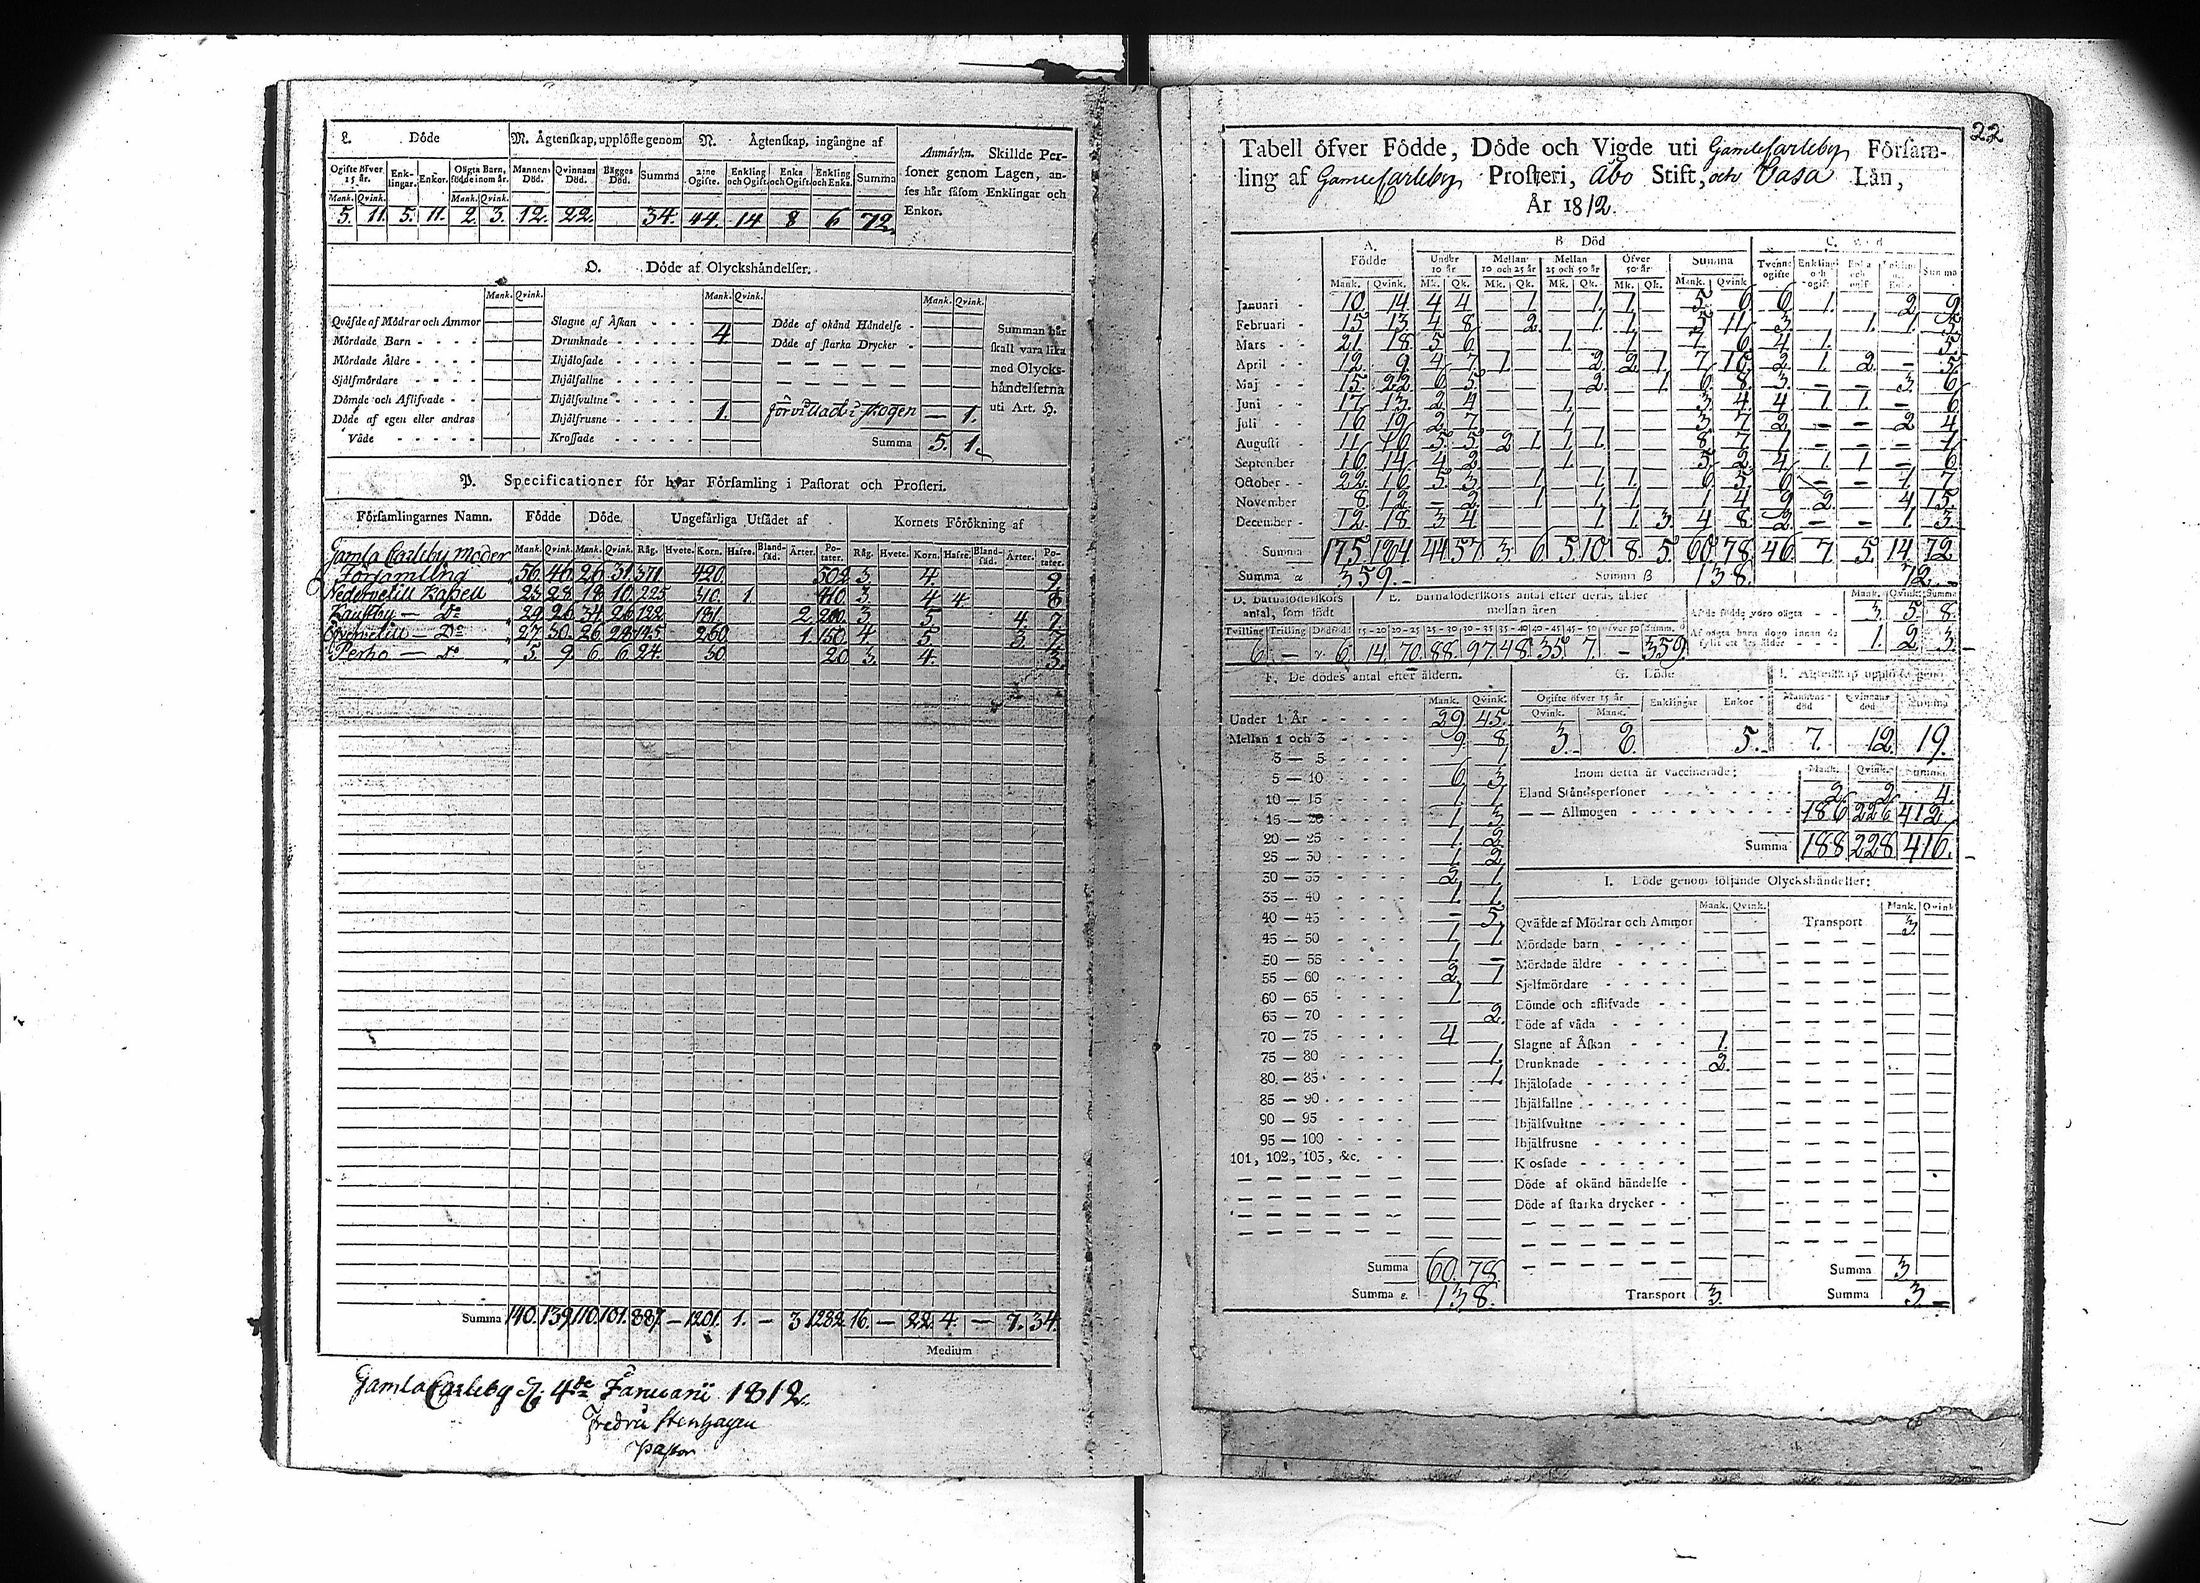 L. Döde
M. Ägtenskap, upplöste genom
N. Ägtenskap, ingångne af
Anmärkn. Skillde Personer genom Lagen, anses här såsom Enklingar och Enkor.
Ogifte öfver 15 år. Enklingar. Enkor. Oägta Barn, födde inom år. Mannens Död. Qvinnans Död. Bägges Död. Summa 2:ne Ogifte. Enkling och Ogift. Enka och Ogift. Enkling och Enka. Summa
Mank. Qvink. Mank. Qvink.
5. 11. 5. 11. 2. 3. 12. 22. 34. 44. 14 8 6 72.
O. Döde af Olyckshändelser.
Mank. Qvink. Mank. Qvink. Mank. Qvink.
Qväfde af Mödrar och Ammor
Mördade Barn
Mördade Äldre
Sjålfmördare
Dömde och Aflifvade
Döde af egen eller andras Våde
Slagne af Åskan
Drunknade 4
Ihjälosade
Ihjälfallne
Ihjälsvultne
Ihjälfrusne 1.
Krossade
Döde af okänd Händelse
Döde af starka Drycker
förvillad i skogen — 1.
Summa 5. 1.
Summan här skall vara lika med Olyckshändelserna uti Art. H.
P. Specificationer för hvar Församling i Pastorat och Prosteri.
Församlingarnes Namn. Födde Döde. Ungefärliga Utsädet af Kornets Förökning af
Mank. Qvink. Mank. Qvink. Råg. Hvete. Korn. Hafre. Blandsäd. Ärter. Potater. Råg. Hvete. Korn. Hafre. Blandsäd. Ärter. Potater.
Gamla Carleby Moder
Församling 56. 46. 26 31. 371 420. 502 3. 4. 9
Nedervetill Kapell 23 28 18 10. 225 310. 1 410 3. 4 4
Kaustby — Do 29 26 34 26 122 181 2 200 3. 5 4
Öfvervetill — Do 27 30. 26 28 145 260 1. 150 4 5. 3. 7
Perho — Do 5. 9 6 6 24. 30 20 3. 4. 3.
Summa 140. 139 110. 101. 887. — 1201. 1. — 3 1282 16. — 22 4. — 7. 34.
Medium
Gamla Carleby d. 4de Januarii 1812.
Fredric Stenhagen
Pastor
22
Tabell öfver Födde, Döde och Vigde uti Gamle Carleby Församling af Gamle Carleby Prosteri, Åbo Stift, och Vasa Län,
År 1812.
A. Födde B Död
Under 10 år Mellan 10 och 25 år Mellan 25 och 50 år Öfver 50 år Summa Tvenne ogifte
Mank. Qvink. Mk. Qk. Mk. Qk. Mk. Qk. Mk. Qk. Mank. Qvink
Januari 10 14 4 4 1 1. 1. 5 6 6 1. 2 9
Februari 15 13 4 8 2 1. 1. 5 11 3 1. 1. 5
Mars 21 18 5 6 1 1. 7 6 4 1. 5
April 12 9 4 7 1. 2 2 1. 7 10 2 1. 2 — 5
Maj 15. 22 6 5 2 1 6. 8. 3 — — 3 6
Juni 17 13. 2 4 1. 3 4 4 1. 1. — 6
Juli 16 19 2 7 1. 3 7 2 — — 2 4
Augusti 11 16 5. 5 2 1 1 1. 8 7 1 — — — 1
September 16 14 4 2 1. 5 2 4 1 1 — 6
October 22 16 5. 3 1 1. 1. 6 5 6 — — 1. 7
November 8 12 — 2 1 1. 1. 1 4 9 2. 4 15
December 12. 18 3 4 1. 1. 3 4 8 2 — — 1. 3
Summa 175. 184 44 57 3 6 5 10 8. 5. 60 78 46 7 5. 14 72
Summa α 359. Summa β 138. 72.
D. Barnaföderskors antal, som födt
E. Barnaföderskors antal efter deras ålder mellan åren
Mank. Qvink. Summa
Tvilling Trilling 15—20 20—25 25—30 30—35 35—40 40—45 45—50 öfver 50
6 — 6 14 70. 88. 97. 48. 35. 7. — 359.
3 5 8
1. 2 3.
F. De dödes antal efter åldern.
Mank. Qvink.
Under 1 År 29 45.
Mellan 1 och 3 9 8
3 — 5 1
5 — 10 6 3
10 — 15 1 1
15 — 20 1 3
20 — 25 1. 2
25 — 30 1. 2
30 — 35 2 1
35 — 40 1. 1.
40 — 45 — 5
45 — 50 1 1
50 — 55 1 —
55 — 60 2 1
60 — 65 1
65 — 70 2
70 — 75 4
75 — 80 1.
80 — 85 1.
85 — 90
90 — 95
95 — 100
101, 102, 103, &c.
Summa 60. 78.
Summa 138.
G. Döde
Ogifte öfver 15 år Enklingar Enkor Mannens död Qvinnans död Summa
Qvink. Mank.
3. 2. 5. 7. 12. 19.
Inom detta år vaccinerade; Mank. Qvink. Summa
Bland Ståndspersoner 2 2 4
— — Allmogen 186 226 412
Summa 188 228 416.
I. Döde genom följande Olyckshändelser:
Mank. Qvink. Mank. Qvink
Qväfde af Mödrar och Ammor
Mördade barn
Mördade äldre
Sjelfmördare
Dömde och aflifvade
Döde af våda
Slagne af Åskan 1.
Drunknade 2.
Ihjälosade
Ihjälfallne
Ihjälsvultne
Ihjälfrusne
Krossade
Döde af okänd händelse
Döde af starka drycker
Transport 3.
Transport 3
Summa 3
Summa 3.